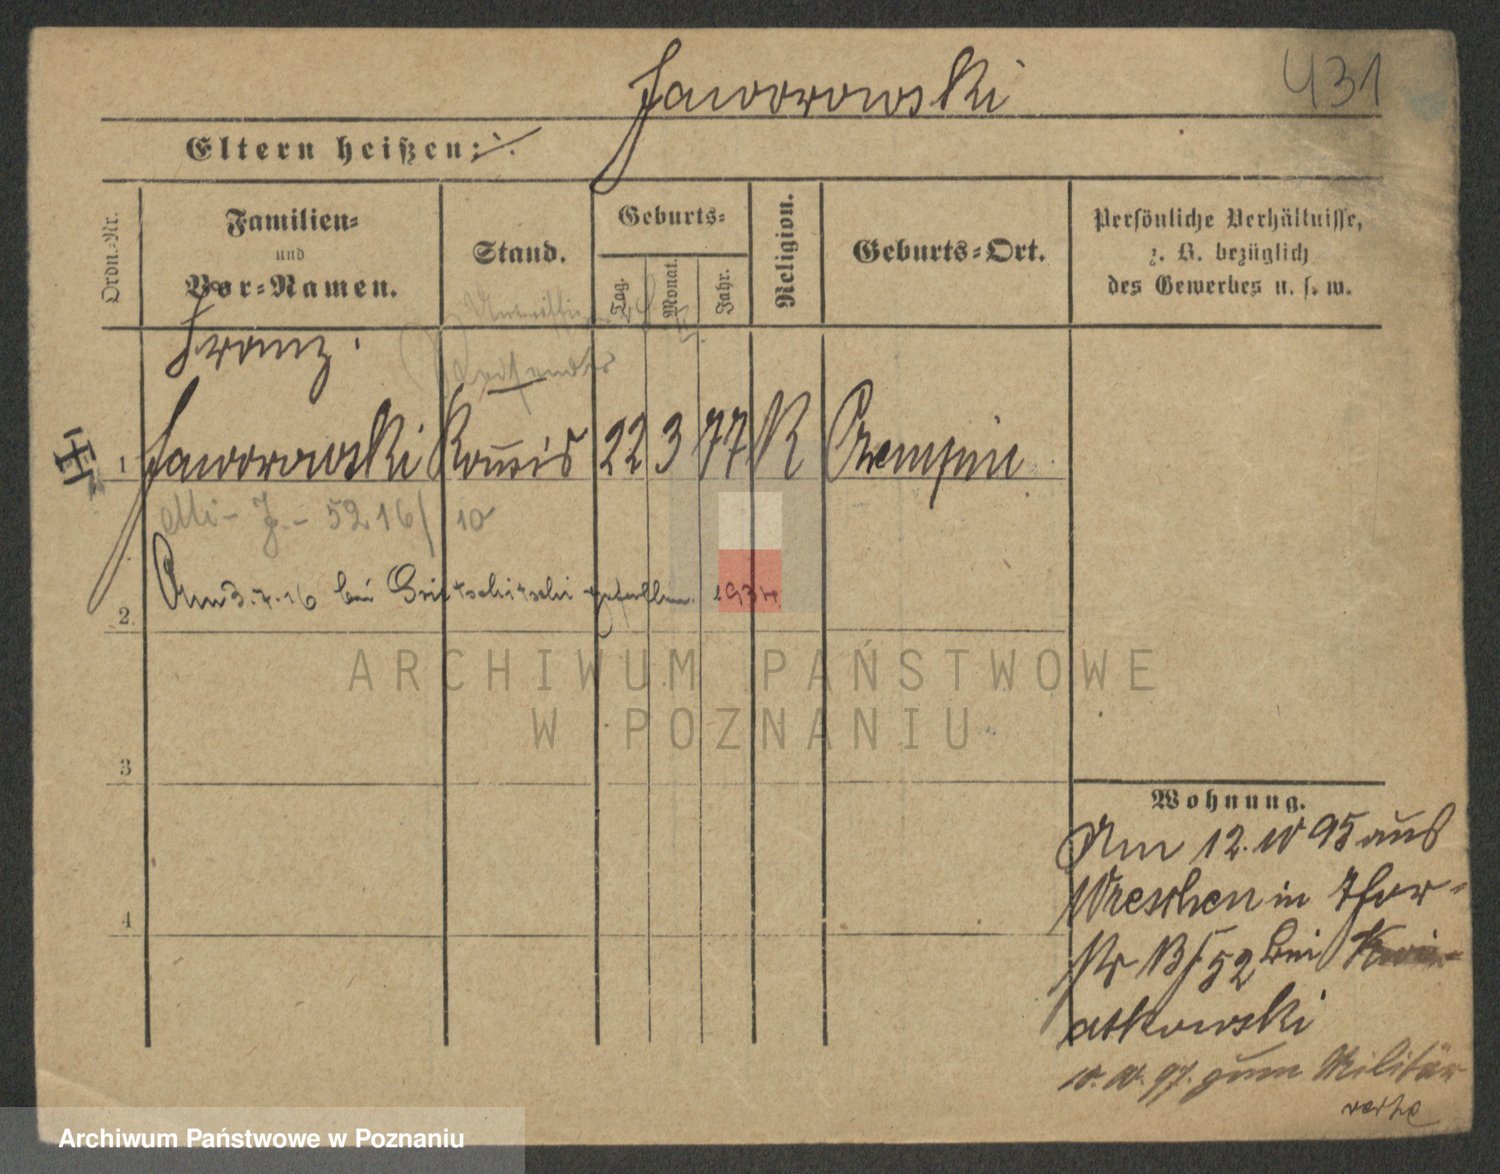 Jaworowski
431
Eltern heißen:
Ordn.-Nr.
Familien-
und
Vor-Namen.
Stand.
Geburts-
Tag.
Monat.
Jahr.
Religion.
Geburts-Ort.
Persönliche Verhältnisse,
z. B. bezüglich
des Gewerbes u. s. w.
Franz
1 Jaworowski Komis 22 3 77 K Czempin
5216/10
2. Am 3.7.16 bei gefallen. 1934
3
4
Wohnung.
Am 12.10 95 aus
Wreschen in
52 bei Kwi-
atkowski
10.10.97. zum Militär
ARCHIWUM PAŃSTWOWE
W POZNANIU
Archiwum Państwowe w Poznaniu